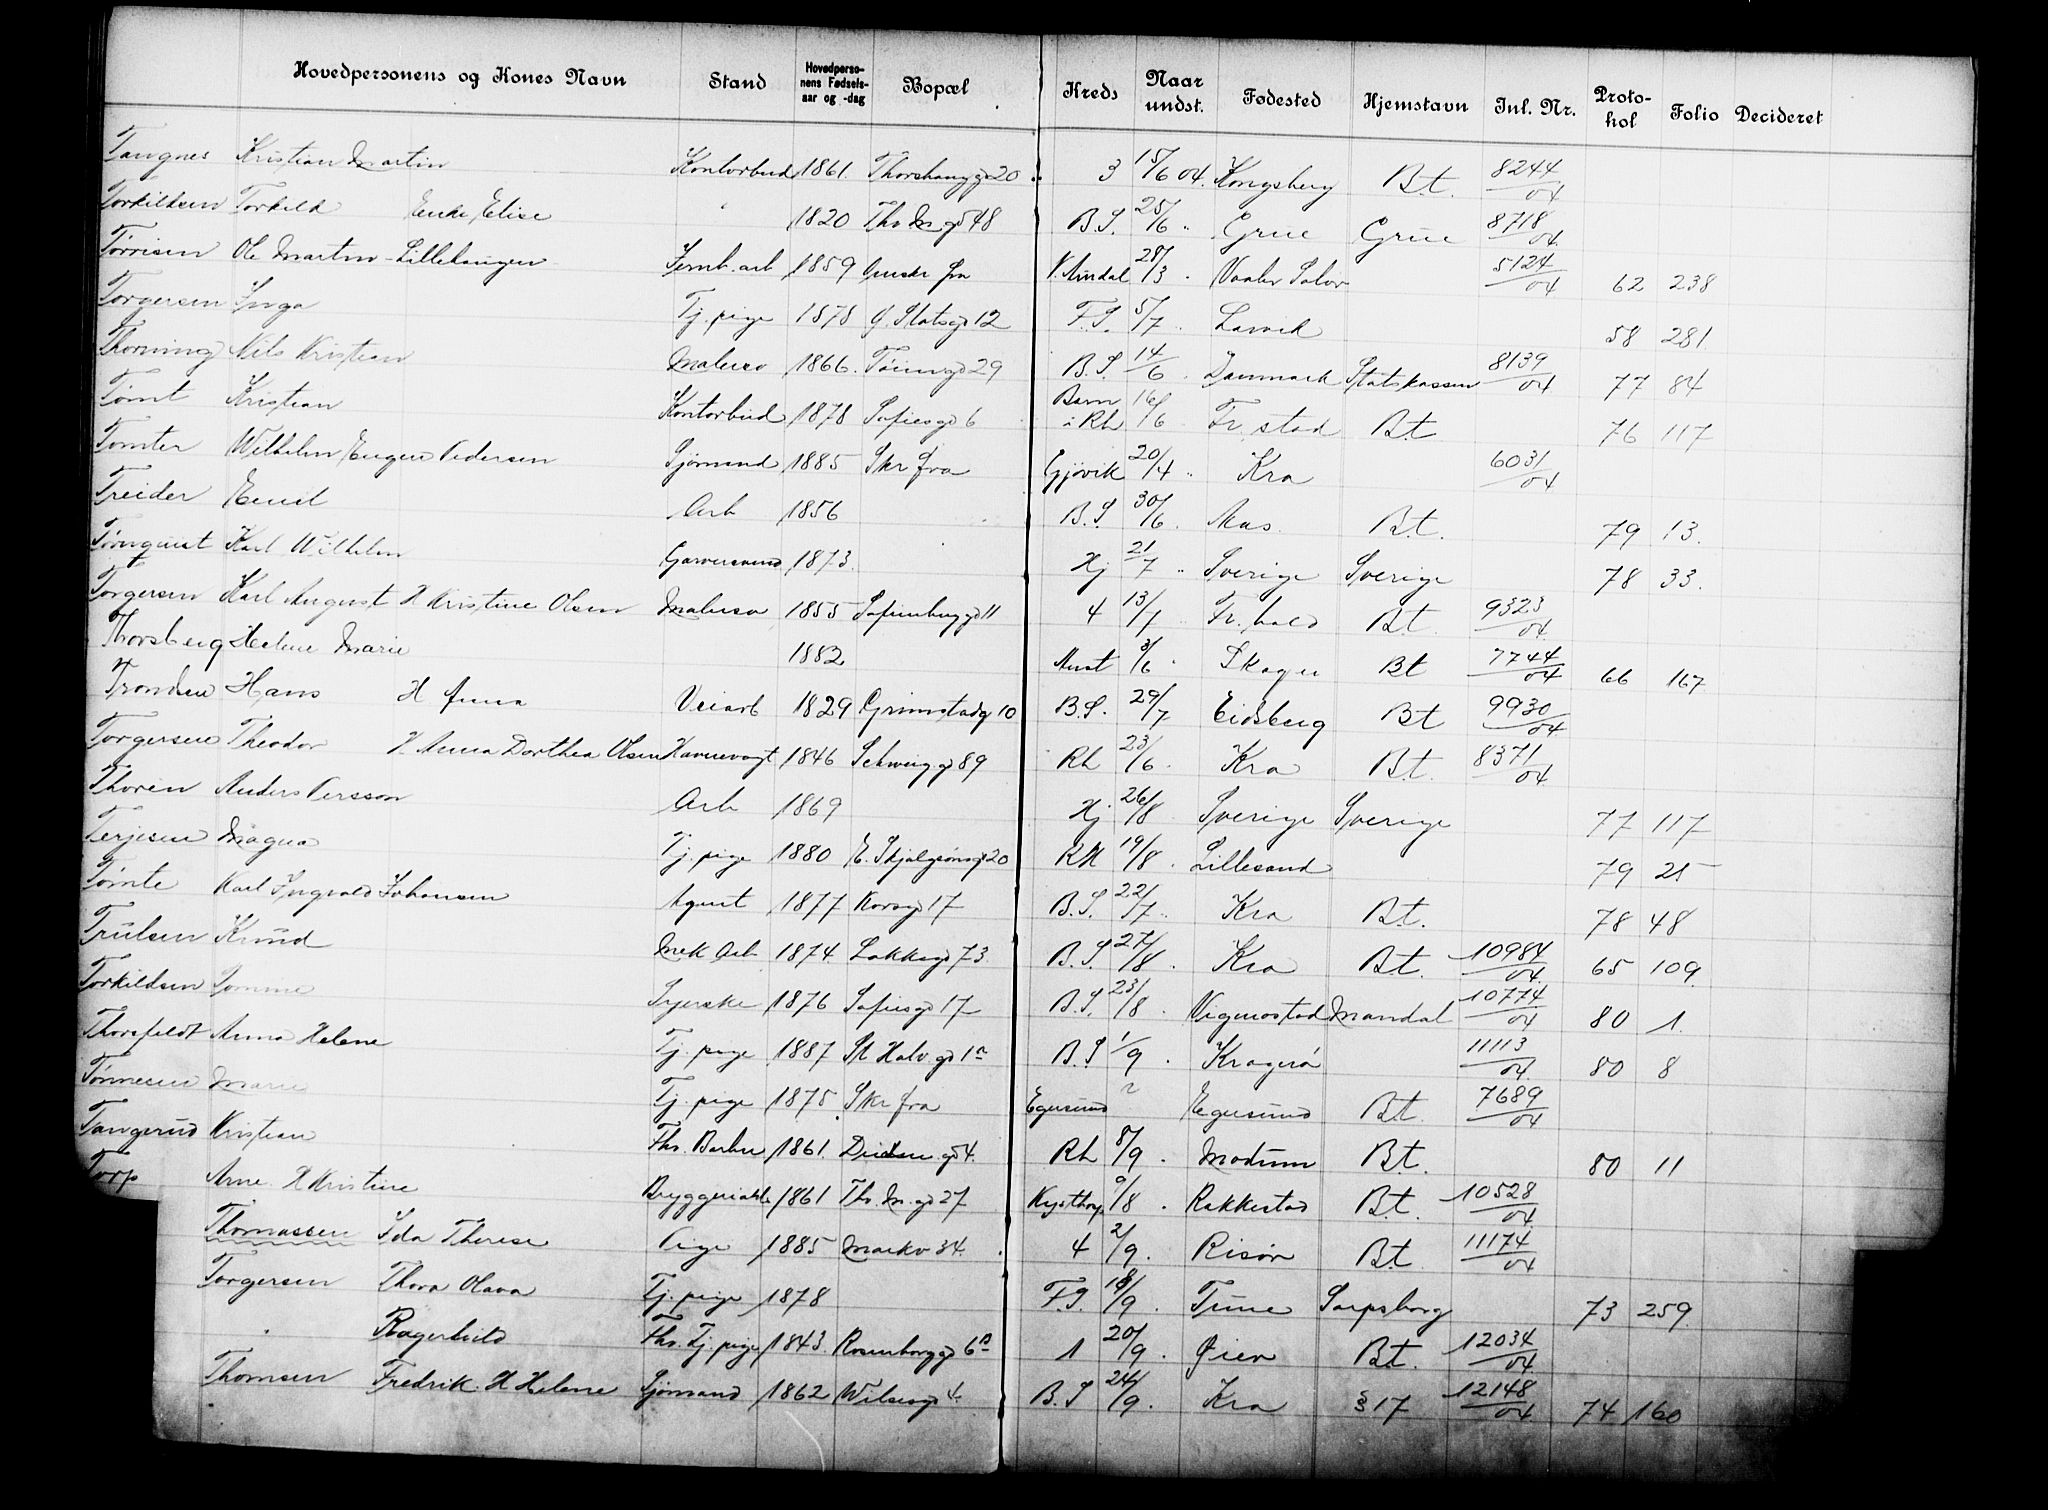 Hovedpersonens og Kones Navn Stand Hovedpersonens Fødselsaar og -dag Bopæl Kreds Naar undst. Fødested Hjemstavn Inl. Nr. Protokol Folio Decideret
Tangnes Kristian Martin Kontorbud 1861. Thorshauggd 20 3 15/6 04. Kongsberg Bt. 8244/04
Torkildsen Torkild Enke Elise 1820 Ths M gd 48 B.S. 25/6 " Grue Grue 8718/04
Tørrisen Ole Martin Lillehaugen Jernb. arb 1859 28/3 Vaaler Solør 5124/04 62 238
Torgersen Inga Tj. pige 1878 Slotsgd 12 F.S. 5/7 " Larvik 58 281
Thorning Nils Kristian Malersv 1866. Tøiengd 29 B.S. 14/6 Danmark Statskassen 8139/04 77 84
Tømt Kristian Kontorbud 1878 Sofiesgd 6 Barn i Rh 16/6 Fr. stad Bt 76 117
Tomter Wilhelm Eugen Pedersen Sjømand 1885 Skr fra Gjøvik 20/4 " Kra 6031/04
Treider Emil Arb 1856 B.S 30/6 Aas. Bt. 79 13.
Tørnquist Karl Wilhelm Garversvend 1873. Hj 21/7 " Sverige Sverige 78 33.
Torgersen Karl August H Kristine Olsen Malersv 1855 Sofienbgd 11 4 13/7 Fr. hald Bt. 9323/04
Thorsberg Helene Marie 1882 3/6 Skoger Bt 7744/04 66 167
Trondsen Hans H Anna Veiarb 1829 Grimstadg 10 B.S. 29/7 Eidsberg Bt 9930/04
Torgersen Theodor H Anna Dorthea Olsen Havnevogt 1846 Schweigg 89 Rh 23/6 Kra Bt. 8371/04
Thorén Anders Persson Arb 1869 Hj 26/8 Sverige Sverige 77 117
Terjesen Magna Tj. pige 1880 E. Skjalgsønsg 20 19/8 Lillesand 79 25
Tømte Karl Ingvald Johansen Agent 1877 Korsgd 17 B.S. 22/7 Kra Bt. 78 48
Trulsen Knud Mek Arb 1874 Lakkegd 73 B.S 27/8 Kra Bt. 10984/04 65 109
Torkildsen Tomine Syerske 1876 Sofiesgd 17 B.S. 23/8 Vigmostad Mandal 10774/04 80 1.
Thorsfeldt Anna Helene Tj. pige 1887 St Halv gd 1 B.S 1/9 Kragerø 11113/04 80 8
Tønnesen Marie Tj. pige 1875 Skr fra Egersund Egersund Bt. 7689/04
Tangerud Kristian 1861. gd 4. Rh 8/9 Modum Bt. 80 11
Torp Arne H Kristine Bryggeriarb 1861 Ths. M. gd 27 9/8 Rakkestad Bt. 10528/04
Thomassen Ida Therese Pige 1885 Markv 34. 4 2/9. Risør Bt. 11174/04
Torgersen Thora Olava Tj. pige 1878 F.S. /9. Tune Sarpsborg 73 259
" Ragnhild Fhv. Tj. pige 1843. Rosenborggd 6 1 20/9. Øier Bt. 12034/04
Thomsen Fredrik H Helene Sjømand 1862 Wilsesgd 4. B.S 24/9. Kra § 17 12148/04 74 160